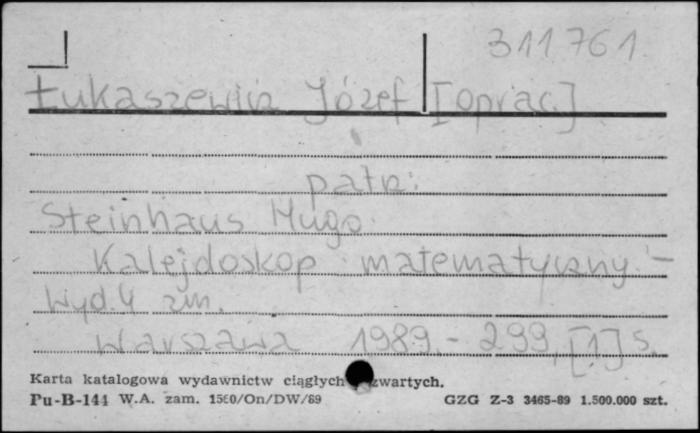 311761
Łukaszewicz Józef [oprac.]
patrz:
Steinhaus Hugo.
Kalejdoskop matematyczny. -
Wyd. 4 zm.
Warszawa 1989. - 299, [1] s.
Karta katalogowa wydawnictw ciągłych zwartych.
Pu-B-144 W.A. zam. 1560/On/DW/89 GZG Z-3 3465-89 1.500.000 szt.